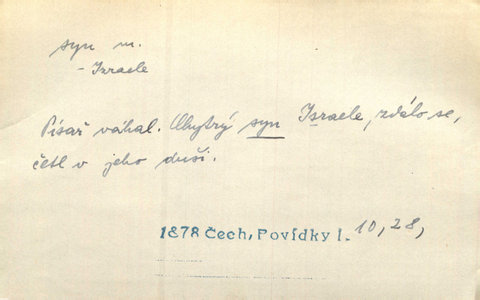 syn m.
- Izraele
Písař váhal. Chytrý syn Israele, zdálo se,
četl v jeho duši.
1878 Čech, Povídky I. 10, 28,